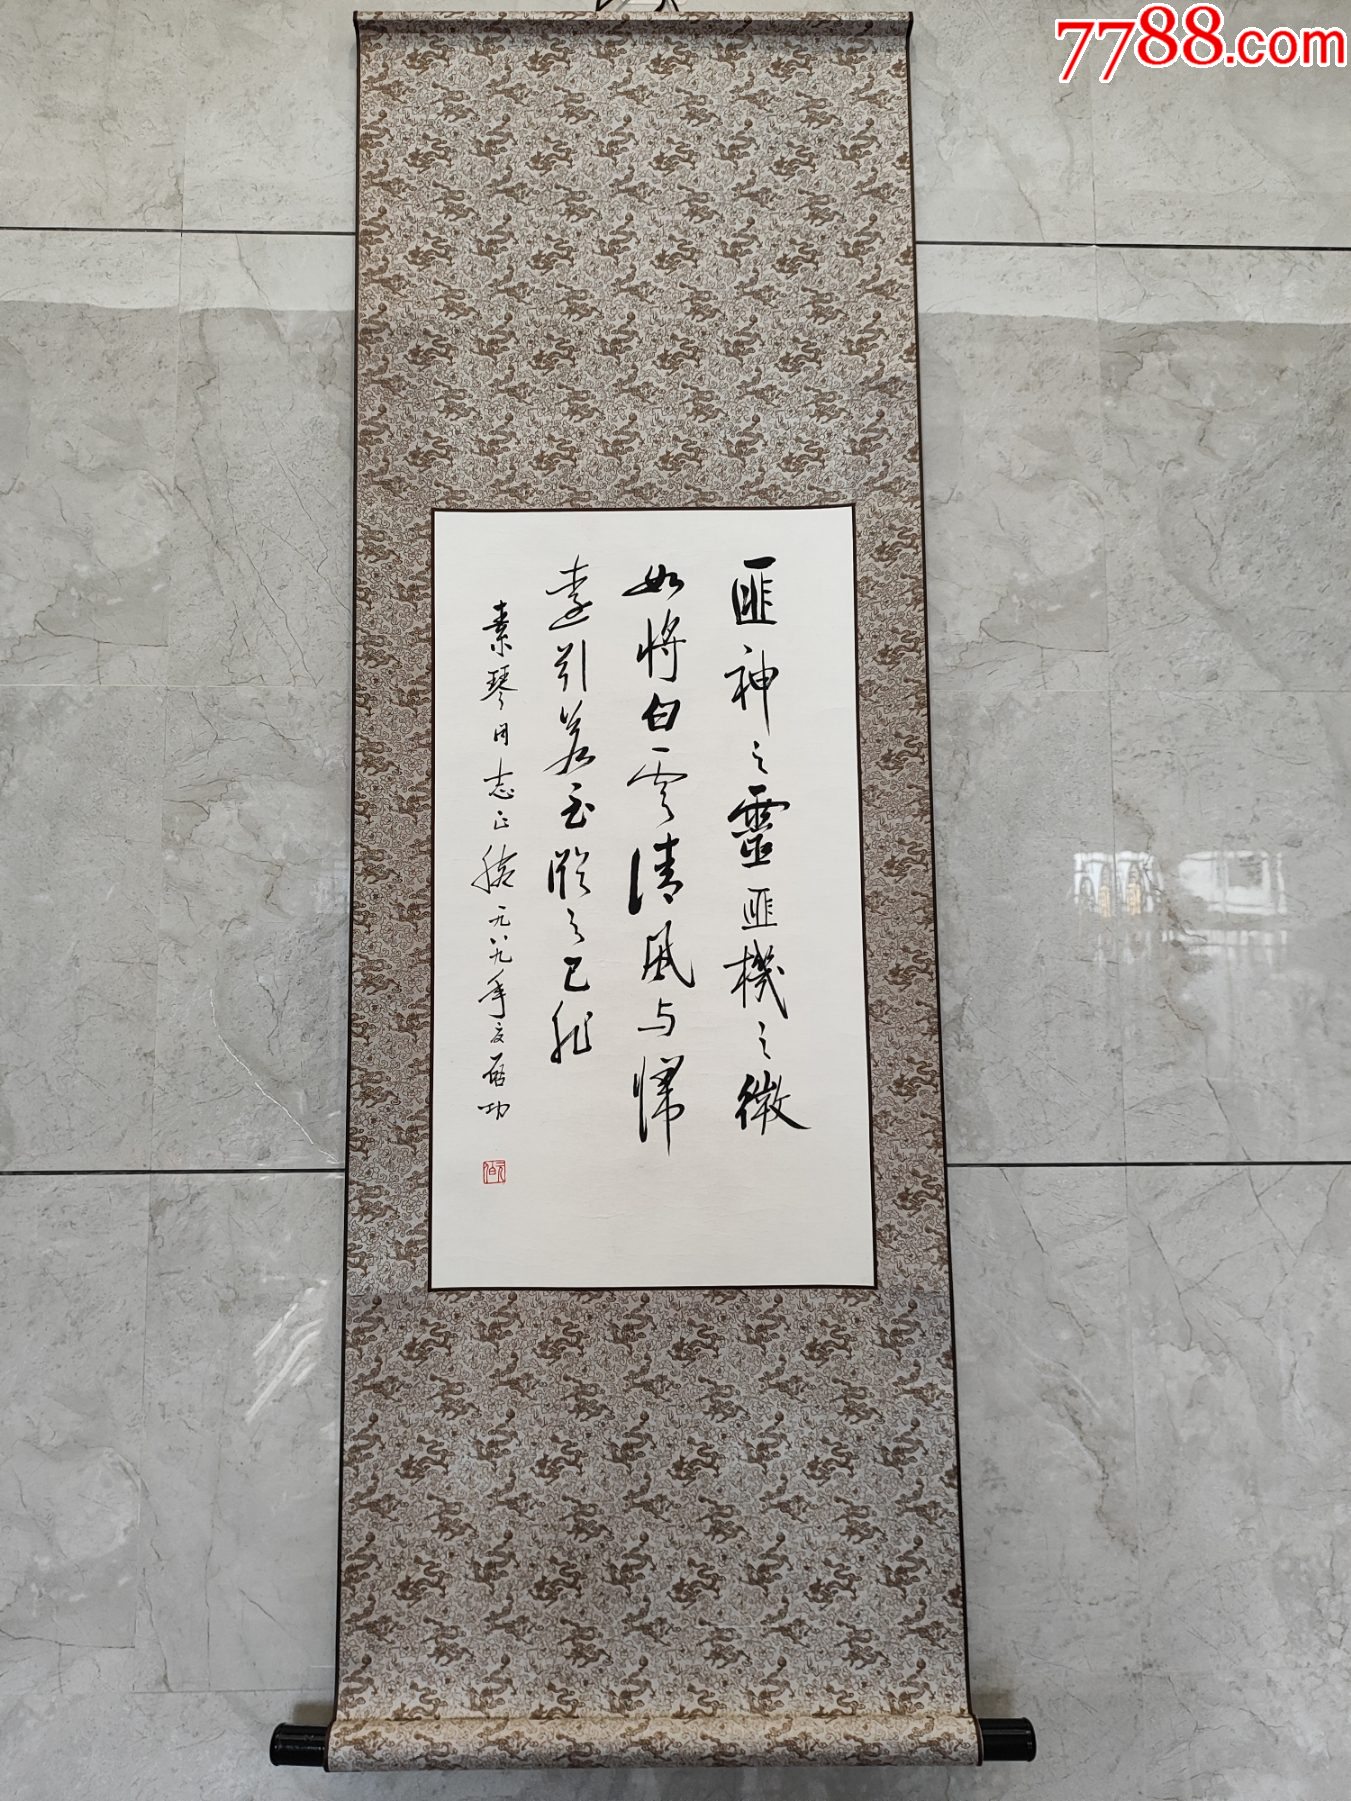 7788.com
匪神之靈匪機之微
如將白雲清風与歸
遠引若至臨之已非
素琴同志正 一九八九年夏 启功
元白